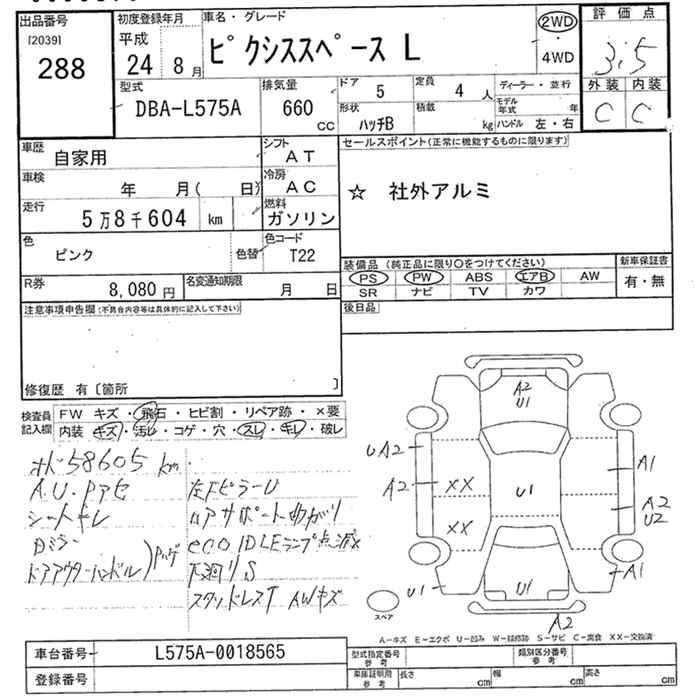 出品番号
[2039]
288
初度登録年月
平成
24 8月
車名・グレード
ピクシススペース L
2WD
・
4WD
評価点
3.5
外装 内装
C C
型式
DBA-L575A
排気量
660
cc
ドア 5
定員 4 人
形状
ハッチB
積載 kg
ディーラー・並行
モデル年式 年
ハンドル 左・右
車歴 自家用
シフト AT
車検 年 月( 日)
冷房 AC
走行 5万8千604 km
燃料 ガソリン
色 ピンク
色替
色コード T22
R券 8,080 円
名変通知期限 月 日
セールスポイント(正常に機能するものに限ります)
☆ 社外アルミ
装備品(純正品に限り○をつけてください)
PS PW ABS エアB AW
SR ナビ TV カワ
新車保証書
有・無
後日品
注意事項申告欄(不具合内容等は具体的に記入して下さい)
修復歴 有〔箇所 〕
検査員記入欄
FW キズ・飛石・ヒビ割・リペア跡・×要
内装 キズ・汚レ・コゲ・穴・スレ・キレ・破レ
58605 km
A.U.Pアセ
シートキレ
Dミラー
ドアアウターハンドル)Pハゲ
左Fピラー U
コアサポート曲がり
eco IDLEランプ点滅
下廻りS
スタッドレスT AWキズ
A2
U1
UA2
A2
XX
XX
U1
A1
A2
U2
U1
U1
A1
A2
スペア
A-キズ E-エクボ U-凹み W-補修跡 S-サビ C-腐食 XX-交換済
車台番号 L575A-0018565
登録番号
型式指定番号 参考
類別区分番号 参考
車庫証明用 参考
長さ cm 幅 cm 高さ cm